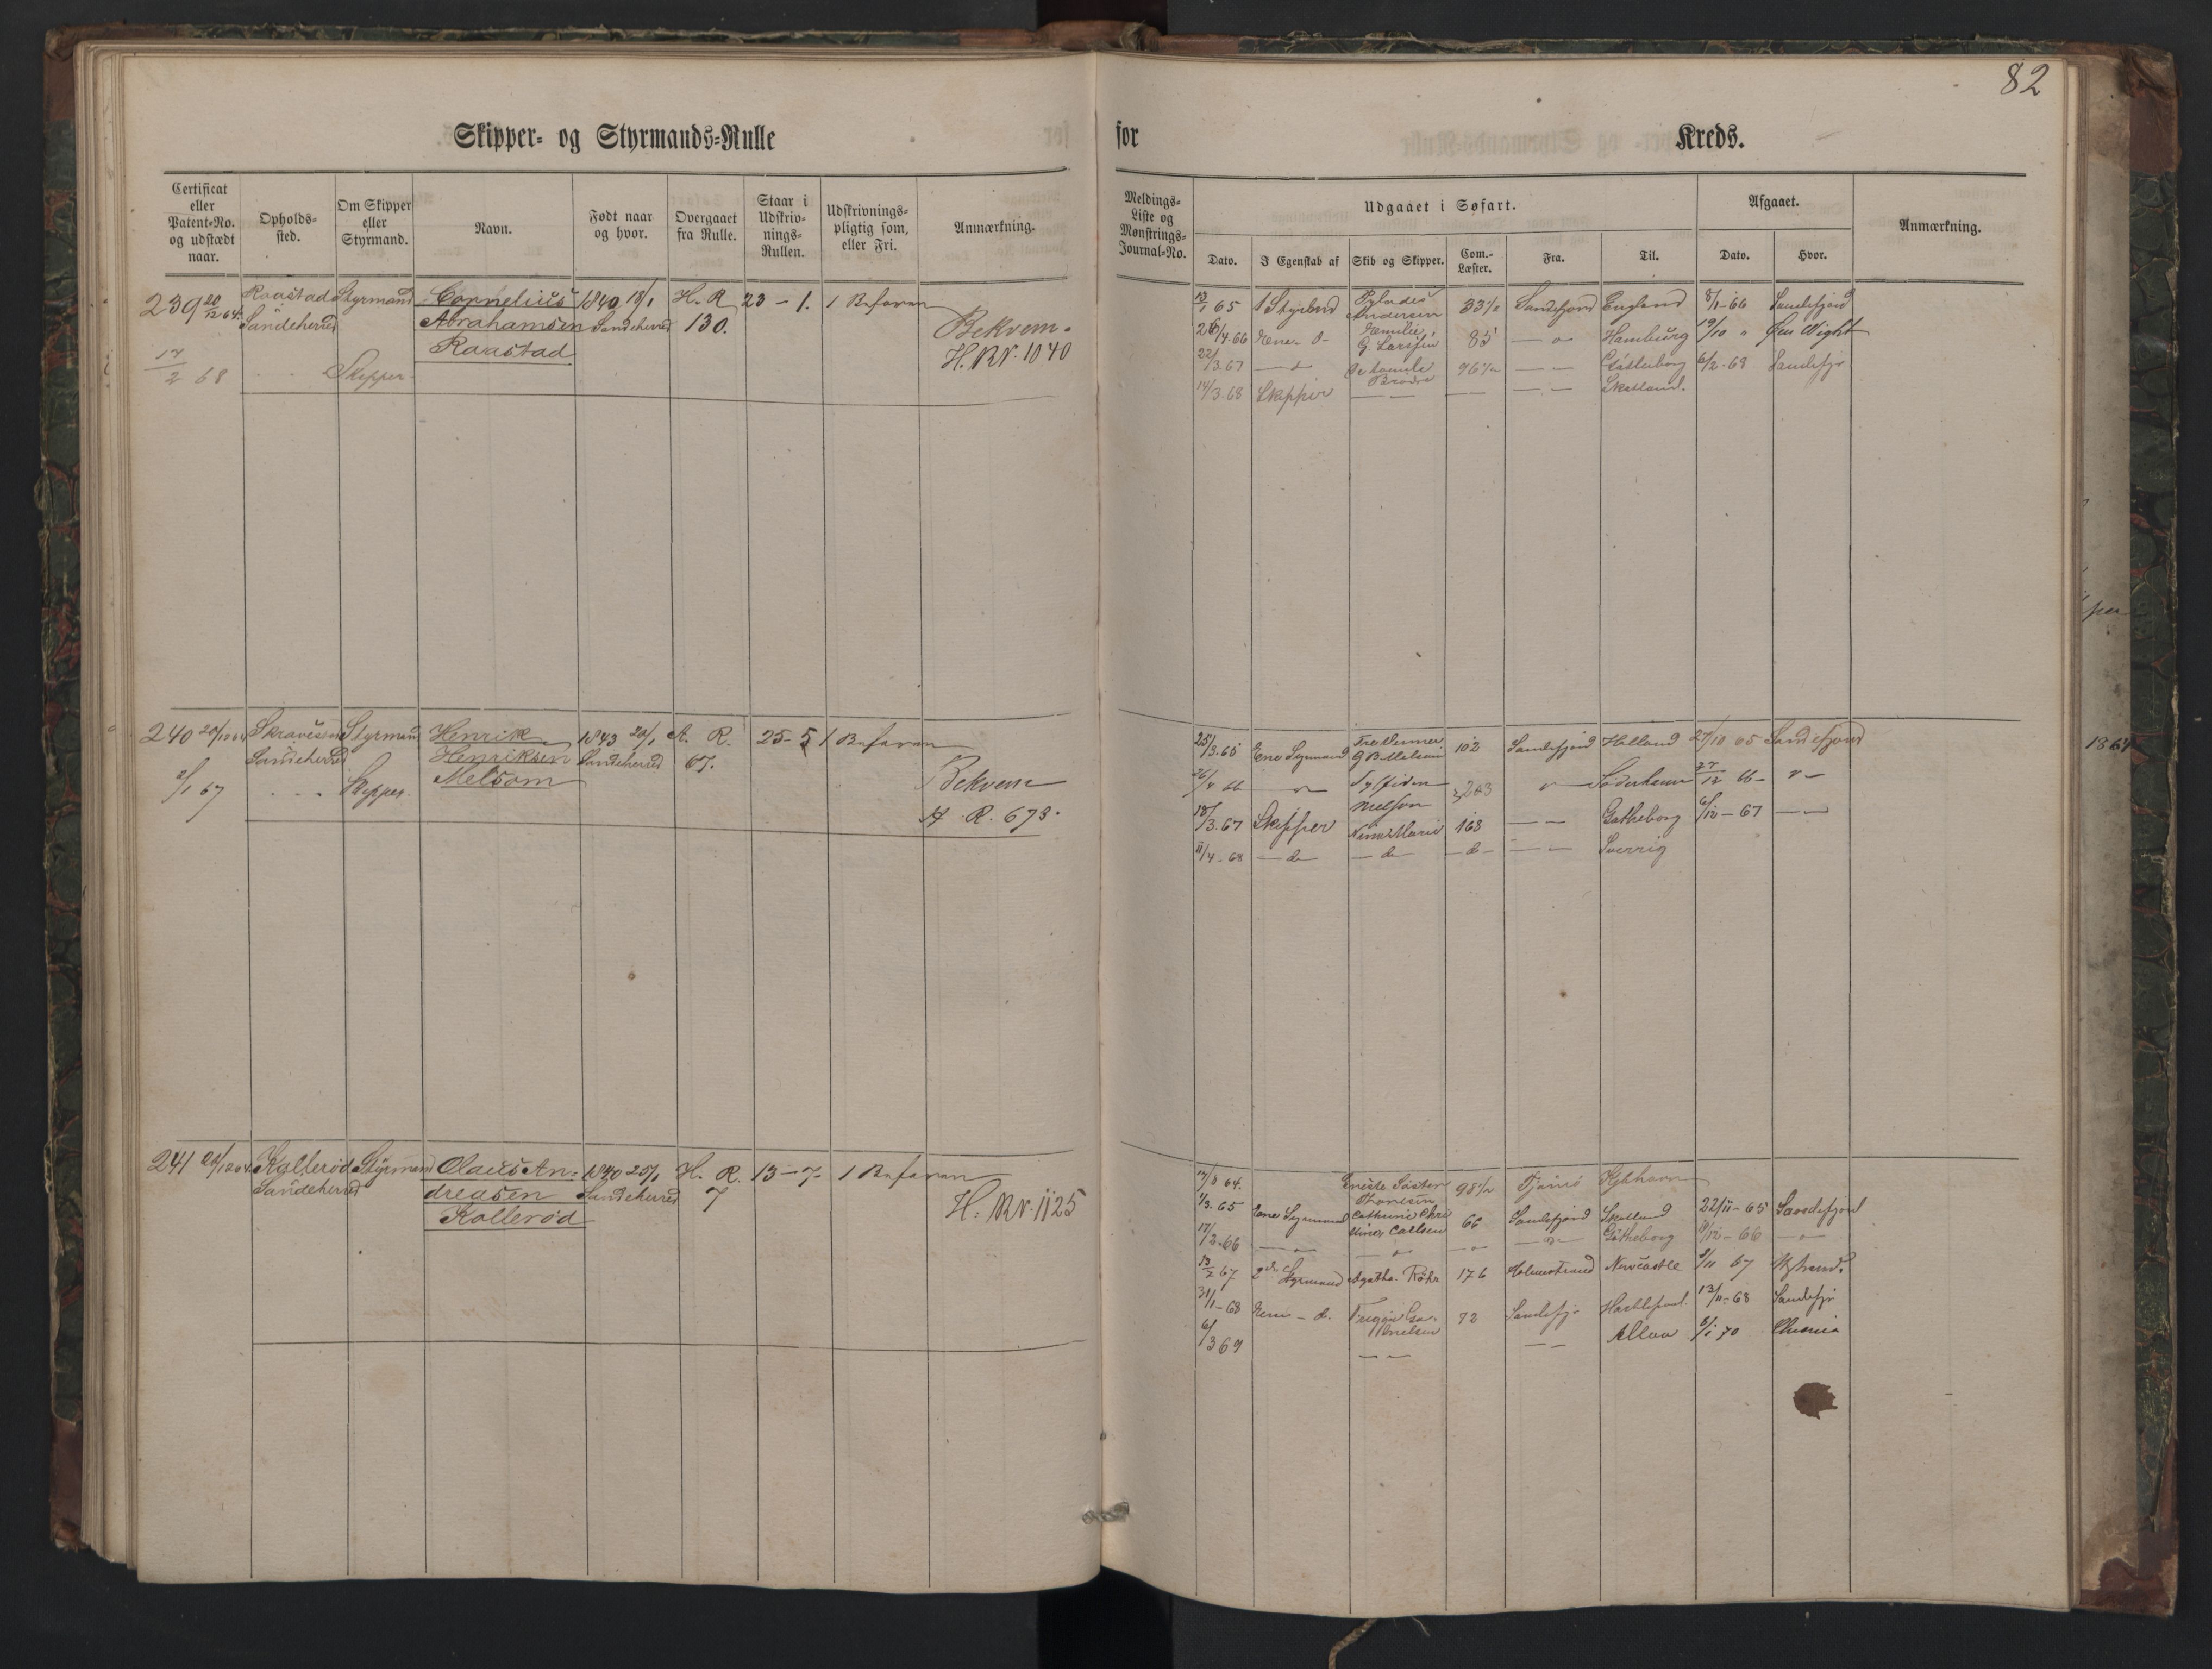 82
Skipper- og Styrmands-Rulle
for
Kreds.
Certificat eller Patent-No. og udstædt naar.
Opholds-sted.
Om Skipper eller Styrmand.
Navn.
Født naar og hvor.
Overgaaet fra Rulle.
Staar i Udskriv-nings-Rullen.
Udskrivnings-pligtig som, eller Fri.
Anmærkning.
Meldings-Liste og Mønstrings-Journal-No.
Udgaaet i Søfart.
Afgaaet.
Anmærkning.
Dato.
I Egenskab af
Skib og Skipper.
Com.-Læster.
Fra.
Til.
Dato.
Hvor.
239 20/12 64. Raastad Styrmand Cornelius 1840 18/1 H. R. 23 - 1. 1 Befaren
Sandeherred Abrahamsen Sandeherred 130.
Raastad
Bekvem.
H. R. N. 1040
17/2 68 " " Skipper.
13/1 65 1 Styrmd Pylades Andersen 33 1/2 Sandefjord England 8/1-66 Sandefjord
26/4.66 Ene- d- Emilie, G. Larssen 85 — " — Hamburg 19/10 " Øen Wight
22/3.67 — d De Gamle Brødre 96 1/2 — — Gøtheborg 6/2-68 Sandefjr
14/3.68 Skipper — — — — — Skotland.
240 20/12 64 Styrmand Henrik 1843 20/1 A. R. 25-5 1 Befaren
Sandeherred Henriksen Sandeherred 67.
Melsom
2/1 67 " " " Skipper.
Bekvem
A. R. 673.
25/3.65 Ene Styrmand Tre Venner G B Melsom 102 Sandefjord Holland 27/10 65 Sandefjord
26/4 66 — " — Sylfiden Melsom 203 " — Söderhamn 27/12 66 - " —
18/3.67 Skipper 168 — — Gøtheborg 6/12 - 67 — —
11/4-68 — do — — do — — d — — — Sverrig
241 20/12 64. Kallerød Styrmand Olaus An- 1840 25/1 H. R. 13-7- 1 Befaren
Sandeherred dreasen Sandeherred 7
Kallerød
H. R. N. 1125
12/8 64. Eneste Søster Thoresen 98 1/2 Tjømø Kjøbhavn
1/3.65 Ene Styrmand Cathrine Christine, Carlsen 66 Sandefjord Skotland 22/11-65 Sandefjord
17/2.66 — " — — " — — " — — " — Gøtheborg 8/12-66 — " —
13/2 67 2den Styrmand Agatha. Röhr 176 Holmestrand Newcastle 8/11 67
31/1-68 Ene - d. 72 Sandefjr Hartlepool 13/11-68 Sandefjr
6/3 69 — — — — Alloa 8/1 70 Chrania
1864